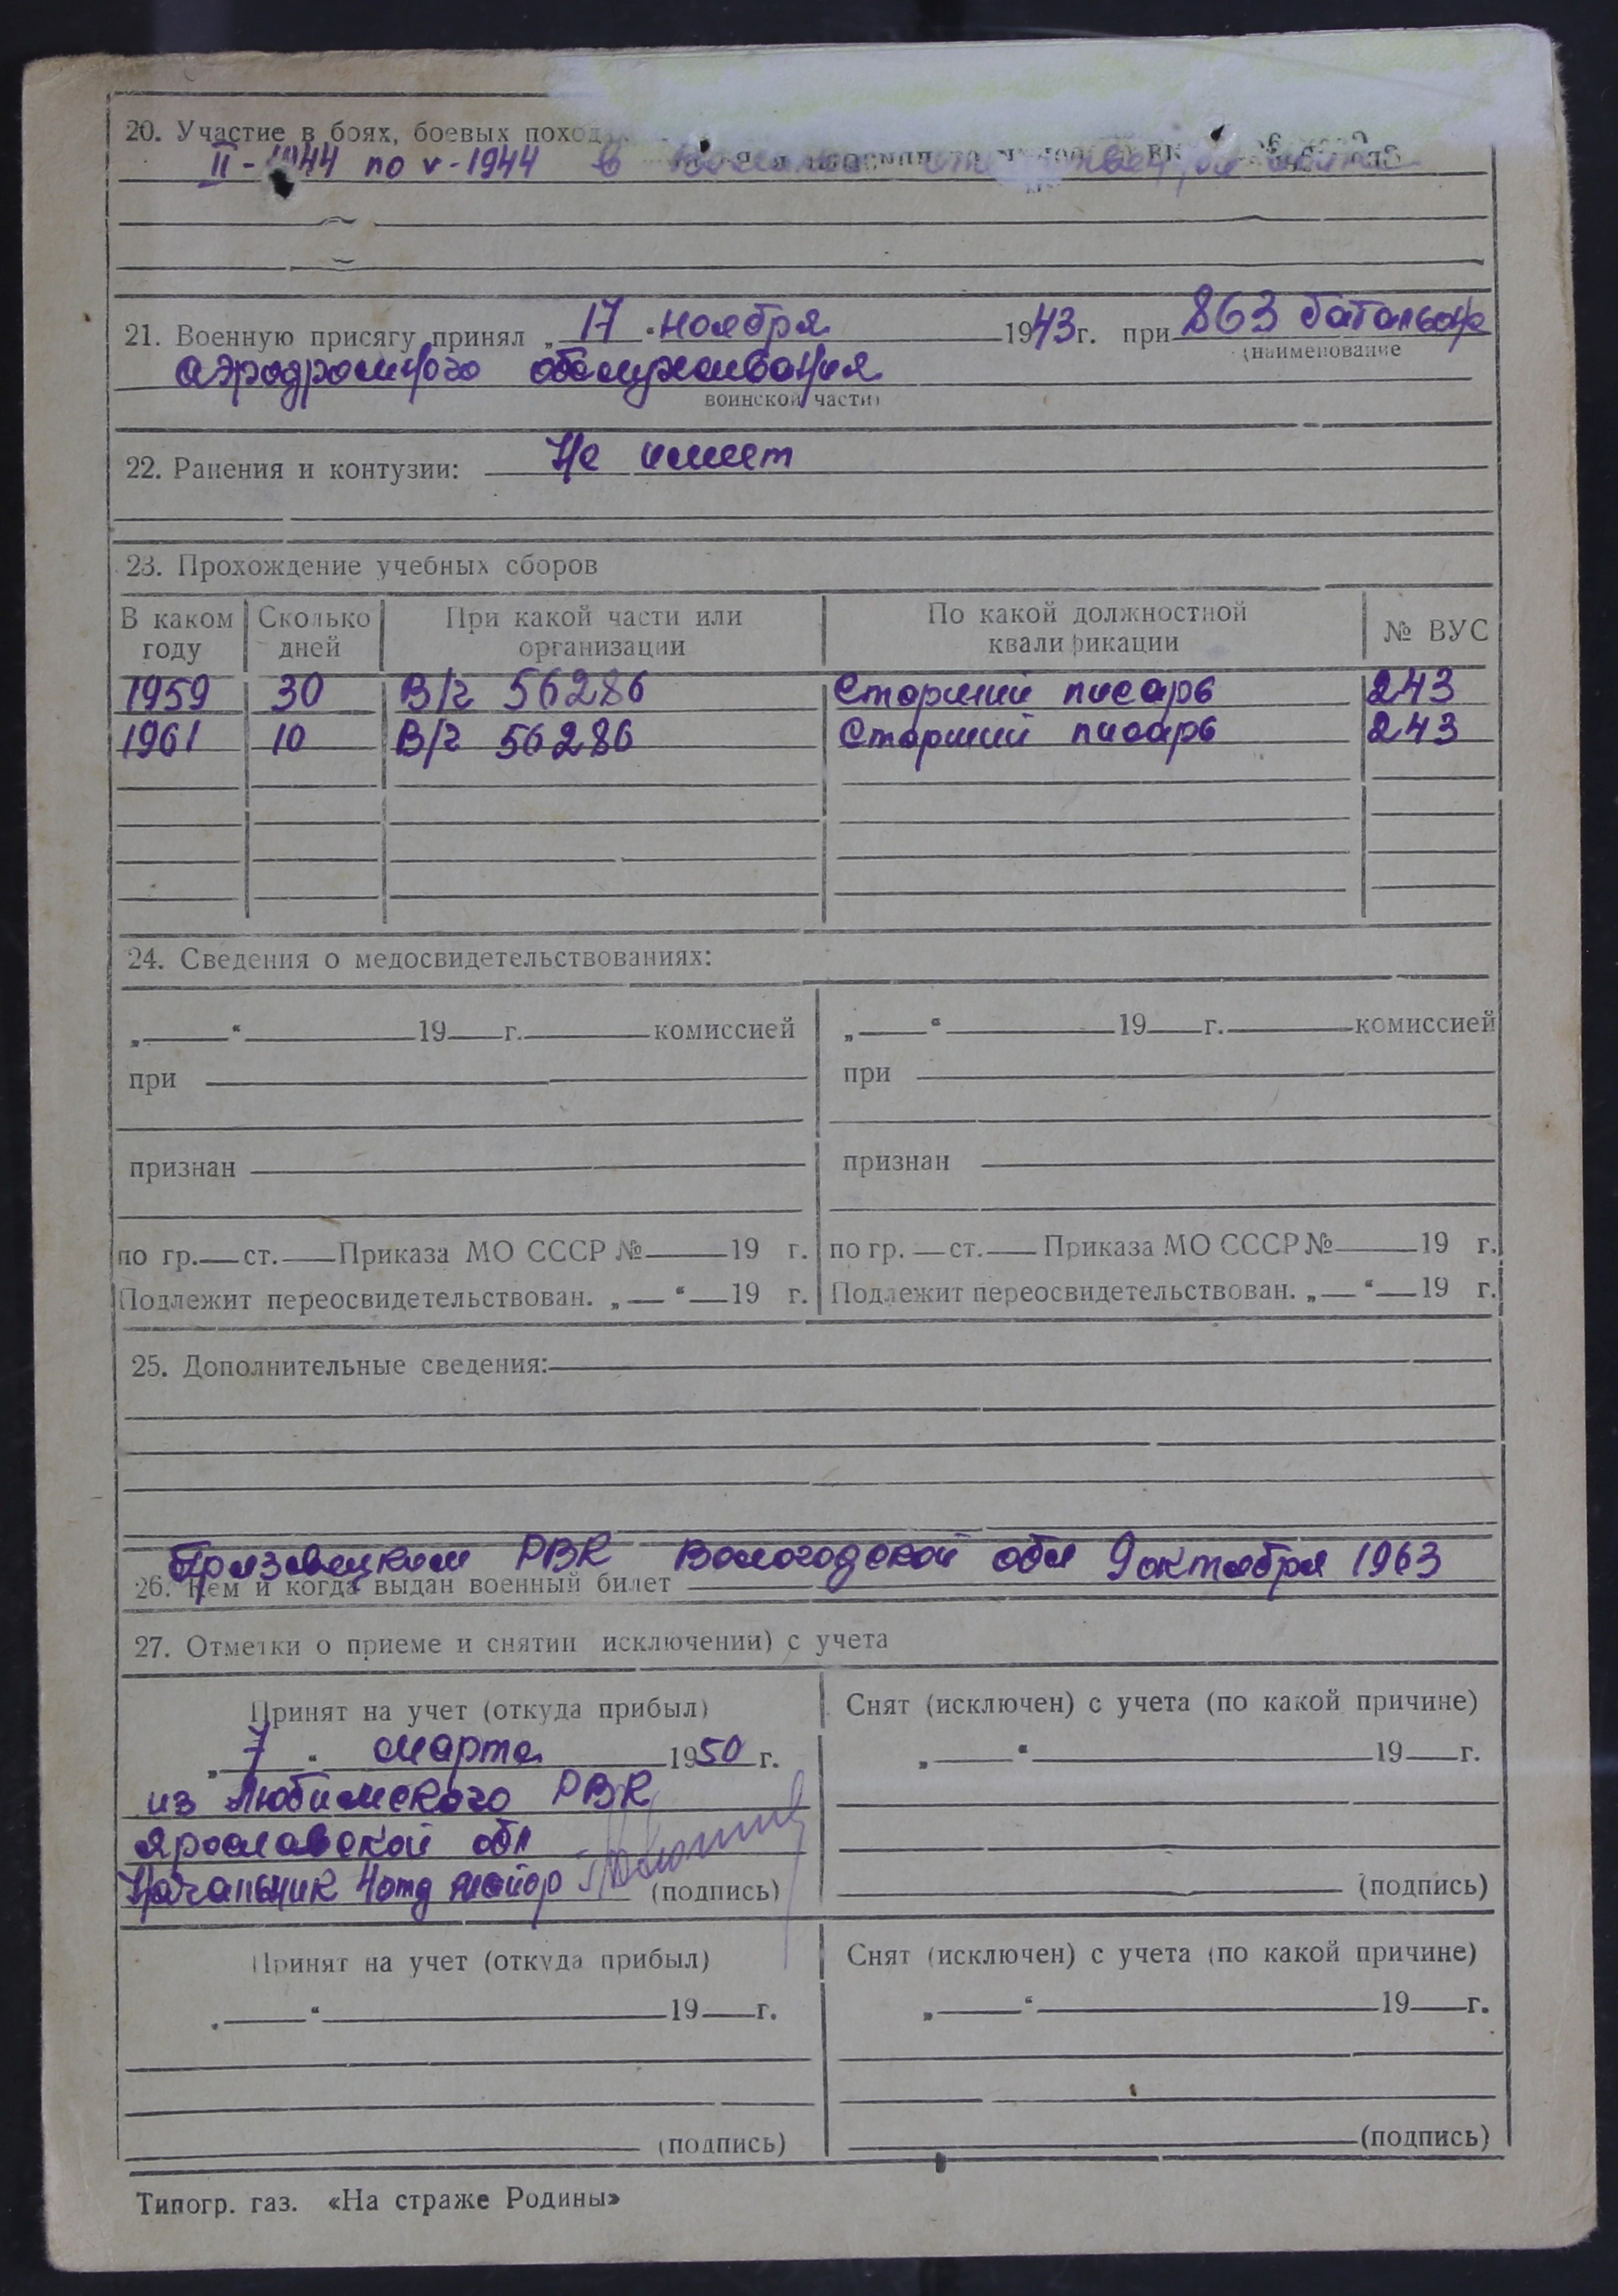 20. Участие в боях, боевых поход
II - 1944 по v - 1944 в
21. Военную присягу принял „ 17 “ ноября 1943 г. при 863 батальоне
(наименование
аэродромного обслуживания
воинской части)
22. Ранения и контузии: Не имеет
23. Прохождение учебных сборов
В каком году Сколько дней При какой части или организации По какой должностной квалификации № ВУС
1959 30 В/г 56286 Старший писарь 243
1961 10 В/г 56286 Старший писарь 243
24. Сведения о медосвидетельствованиях:
„ “ 19 г. комиссией „ “ 19 г. комиссией
при при
признан признан
по гр. ст. Приказа МО СССР № 19 г. по гр. ст. Приказа МО СССР № 19 г.
Подлежит переосвидетельствован. „ “ 19 г. Подлежит переосвидетельствован. „ “ 19 г.
25. Дополнительные сведения:
РВК Вологодской обл 9 октября 1963
26. Кем и когда выдан военный билет
27. Отметки о приеме и снятии исключении) с учета
Принят на учет (откуда прибыл) Снят (исключен) с учета (по какой причине)
„ 7 “ марта 1950 г. „ “ 19 г.
из Любимского РВК
Ярославской обл
Начальник 4 отд майор (подпись) (подпись)
Принят на учет (откуда прибыл) Снят (исключен) с учета (по какой причине)
„ “ 19 г. „ “ 19 г.
(подпись) (подпись)
Типогр. газ. «На страже Родины»